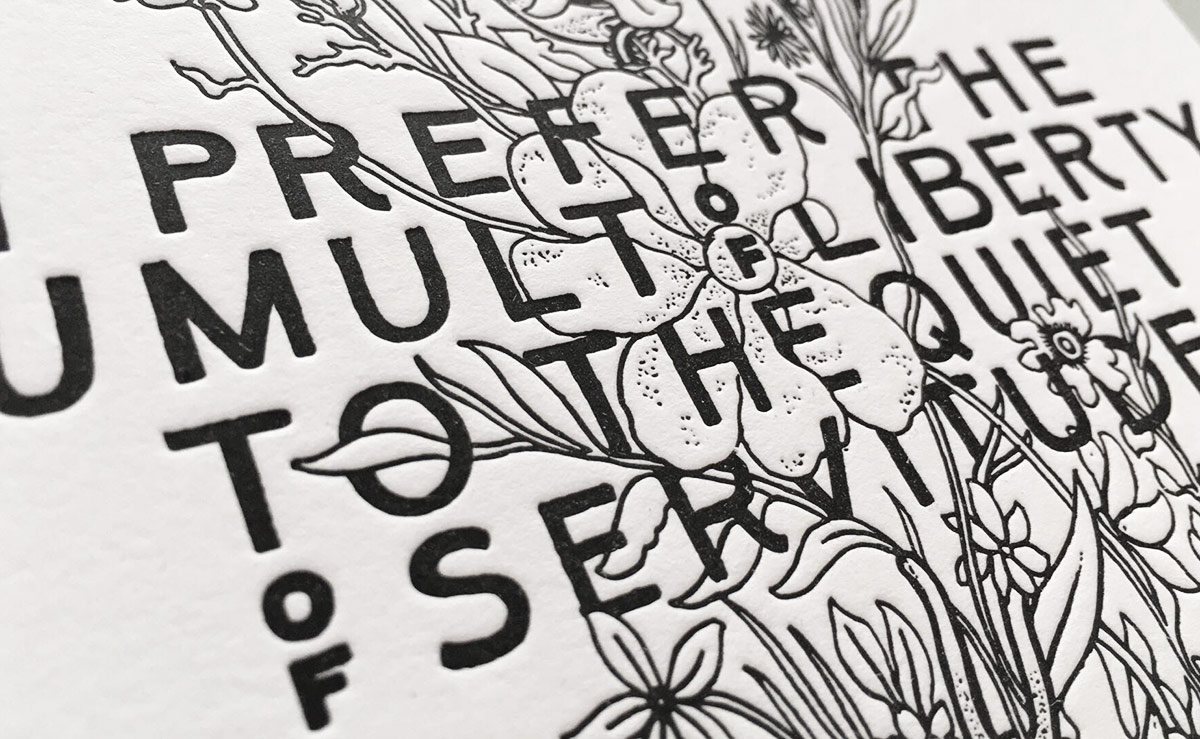 PREFER THE
UMULT OF LIBERTY
TO THE QUIET
OF SERVITUDE